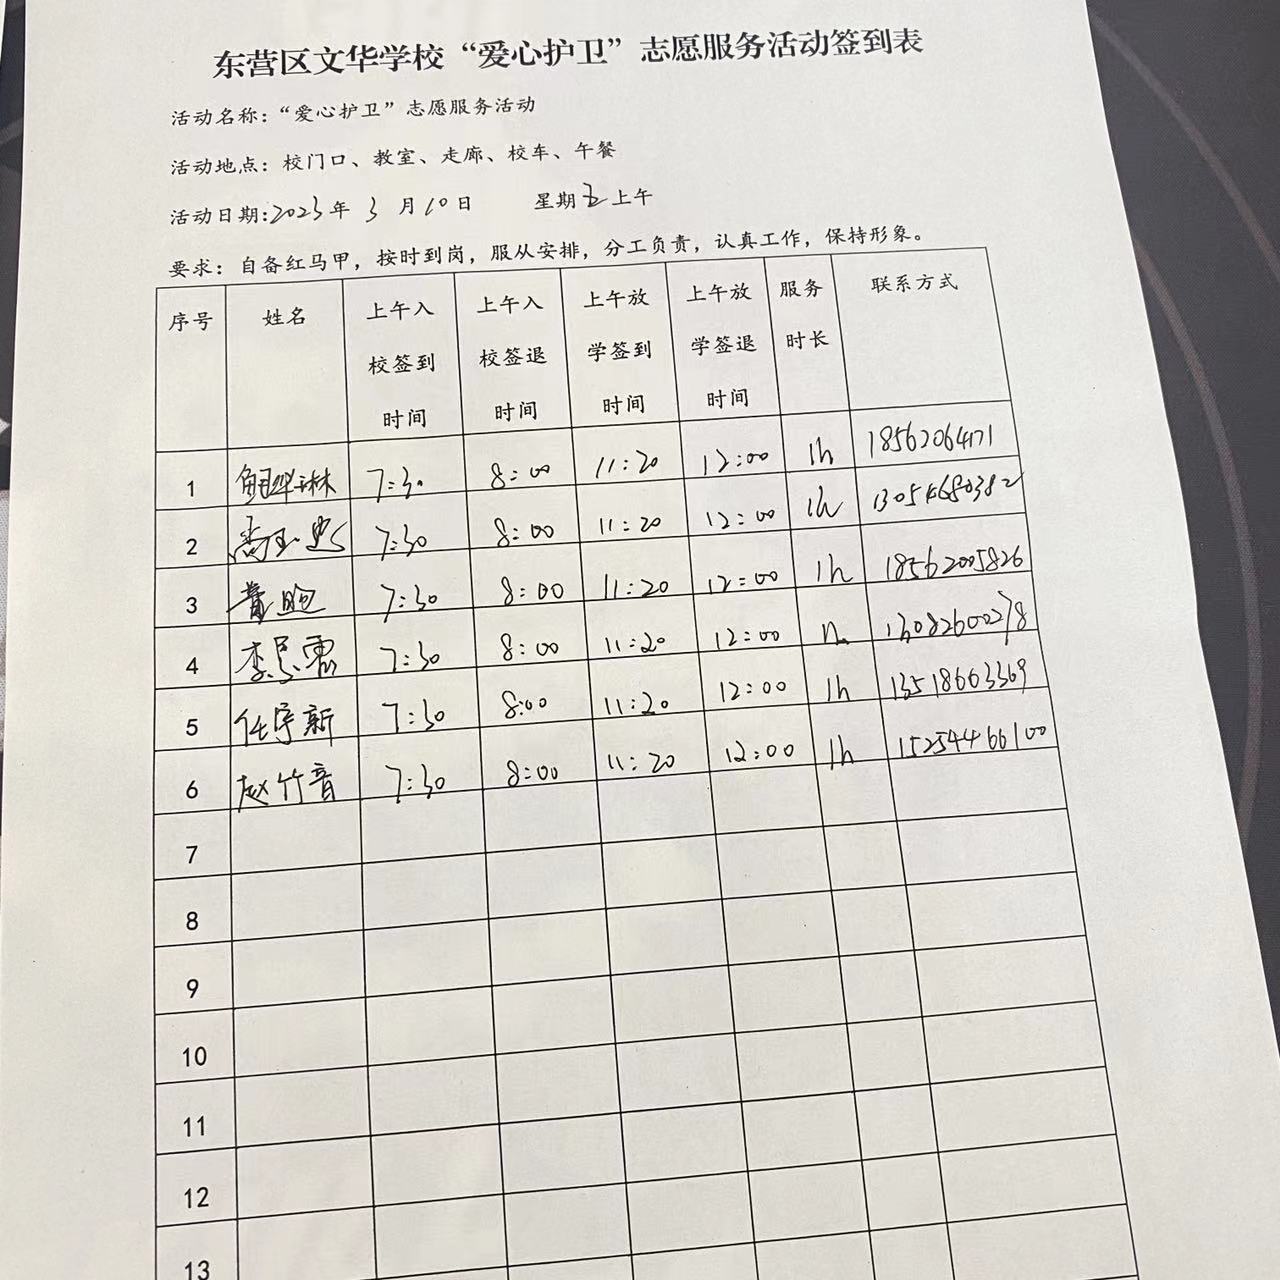 东营区文华学校“爱心护卫”志愿服务活动签到表
活动名称：“爱心护卫”志愿服务活动
活动地点：校门口、教室、走廊、校车、午餐
活动日期:2023年 3 月 10日 星期五上午
要求：自备红马甲，按时到岗，服从安排，分工负责，认真工作，保持形象。
序号 姓名 上午入校签到时间 上午入校签退时间 上午放学签到时间 上午放学签退时间 服务时长 联系方式
1 7:30 8:00 11:20 12:00 1h 18562064171
2 7:30 8:00 11:20 12:00 1h 13054680382
3 7:30 8:00 11:20 12:00 1h 18562005826
4 7:30 8:00 11:20 12:00 13082600278
5 任宇新 7:30 8:00 11:20 12:00 1h 13518663369
6 赵竹音 7:30 8:00 11:20 12:00 1h 15254466100
7
8
9
10
11
12
13